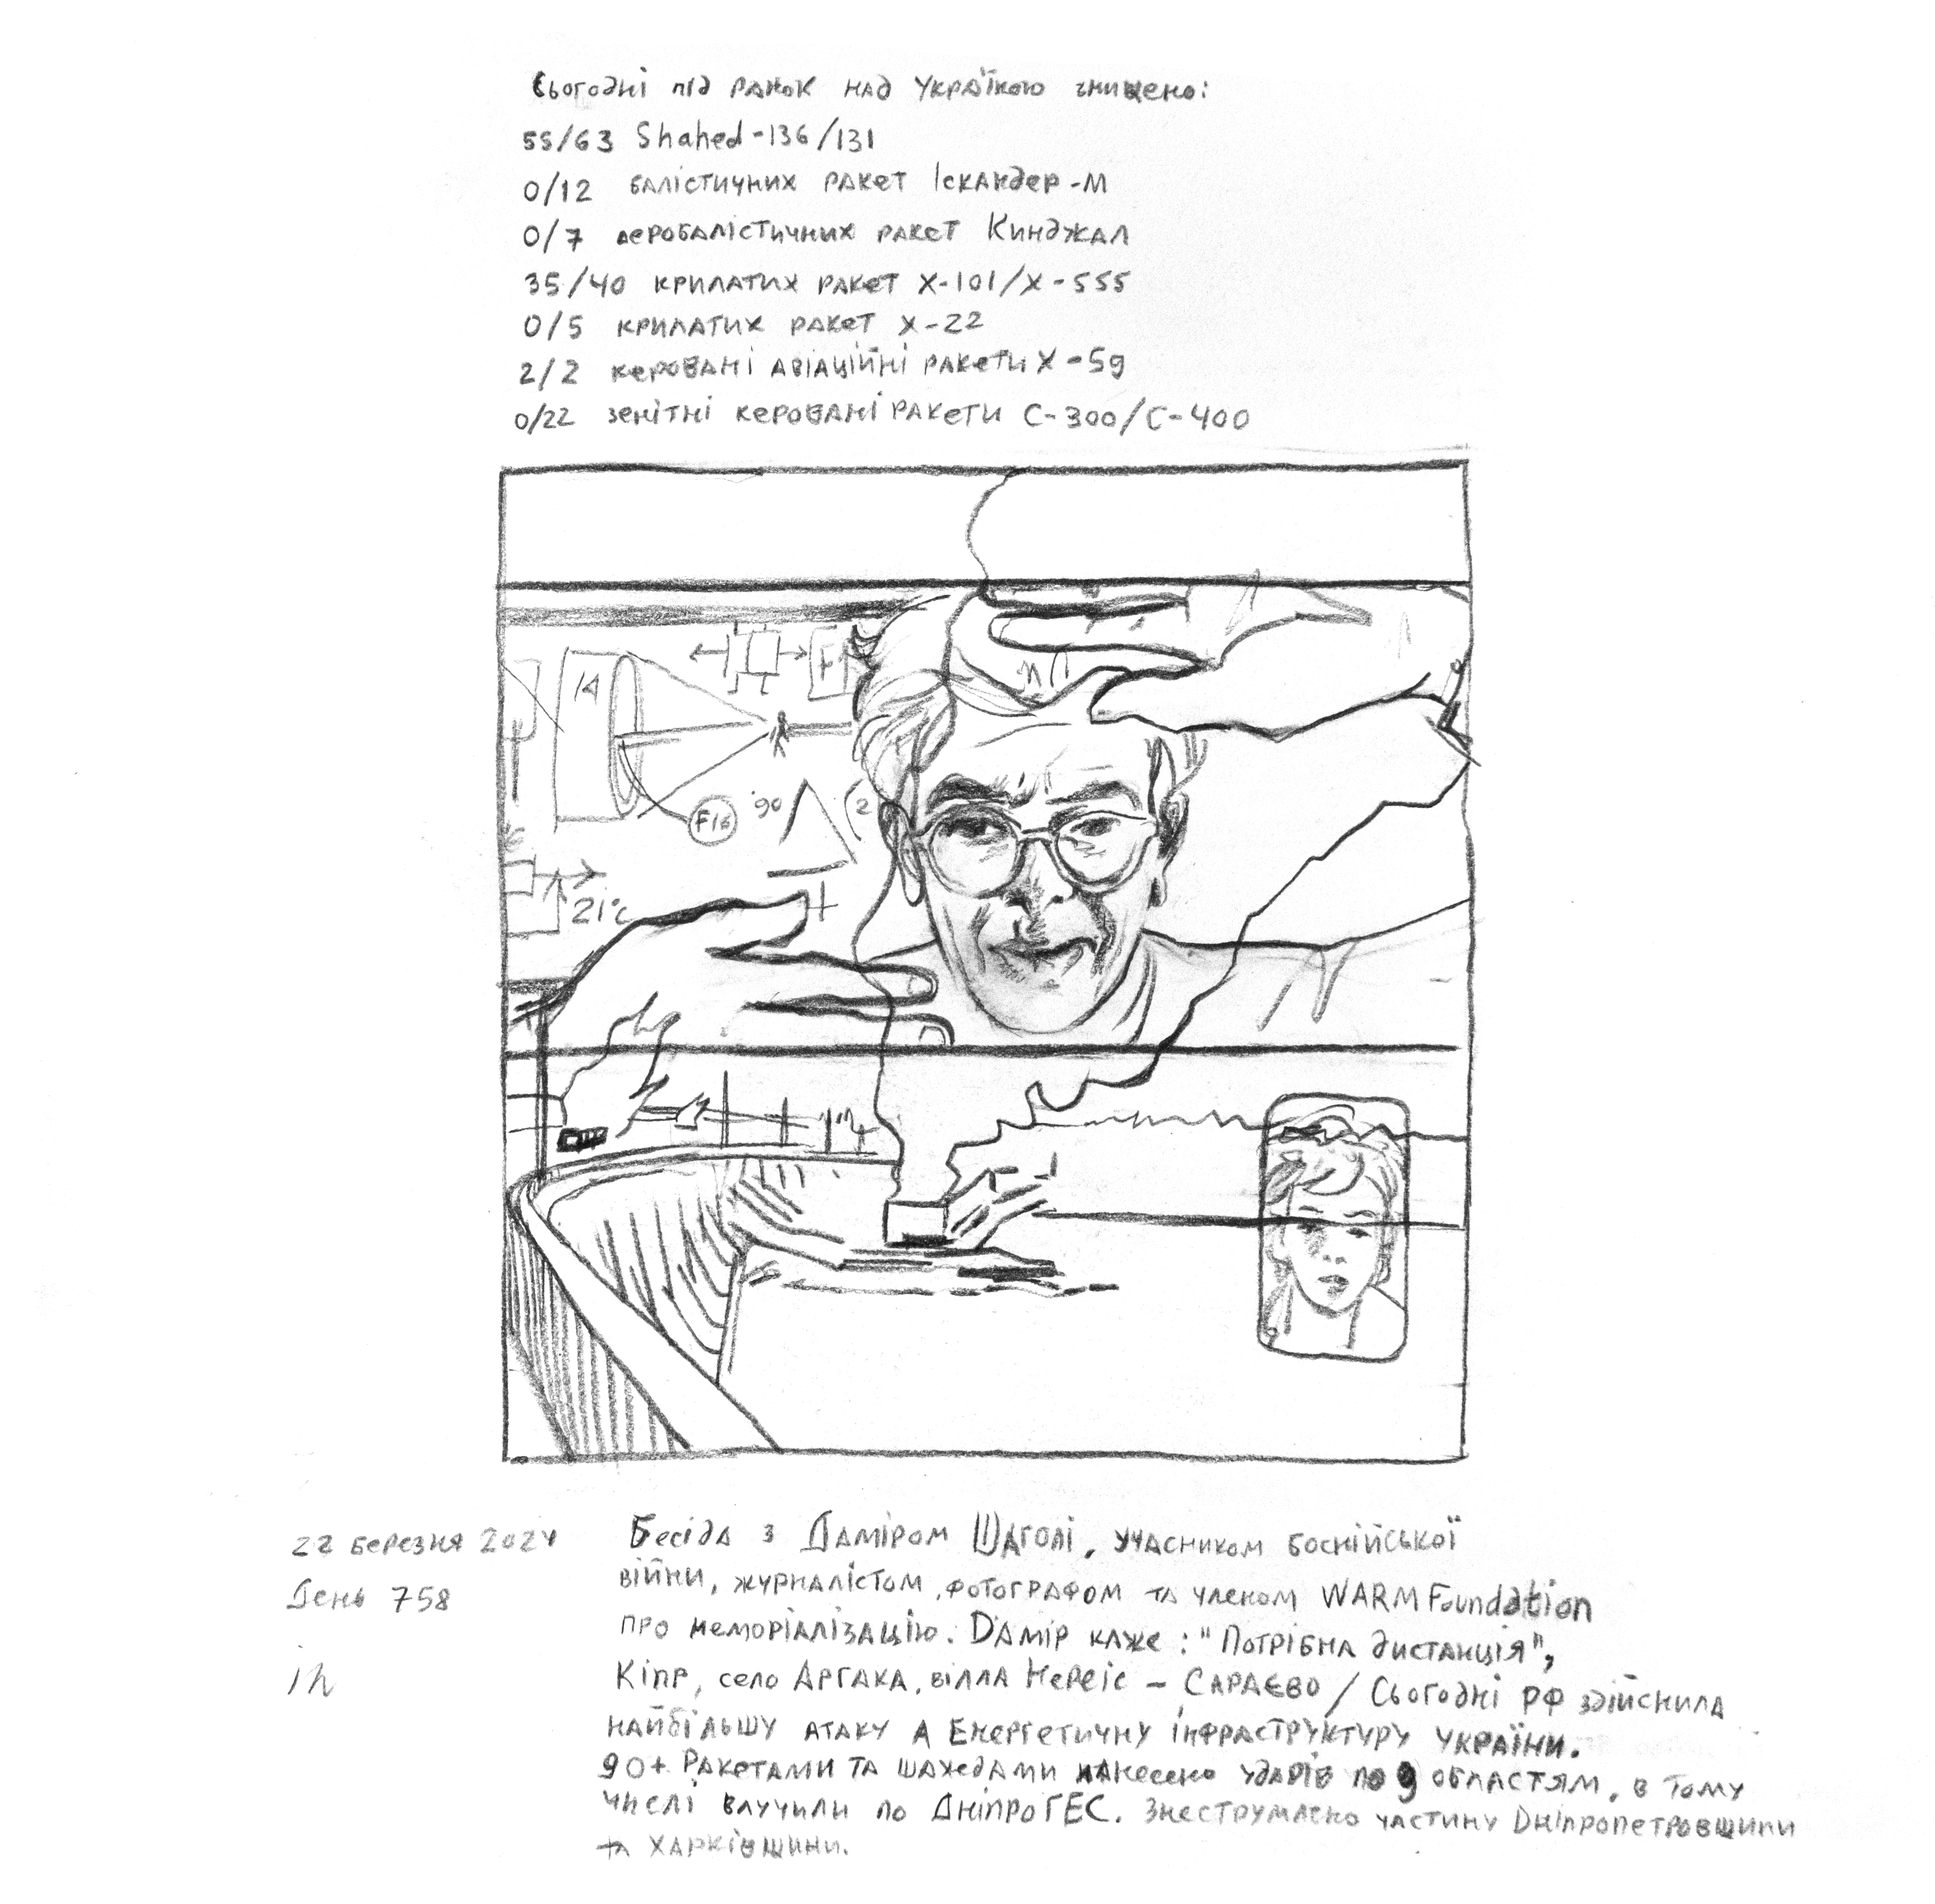 Сьогодні під ранок над Україною знищено:
55/63 Shahed-136/131
0/12 балістичних ракет Іскандер-М
0/7 аеробалістичних ракет Кинджал
35/40 крилатих ракет Х-101/Х-555
0/5 крилатих ракет Х-22
2/2 керовані авіаційні ракети Х-59
0/22 зенітні керовані ракети С-300/С-400
14
F16
90
21°C
22 березня 2024
День 758
ih
Бесіда з Даміром Шаголі, учасником боснійської
війни, журналістом, фотографом та членом WARM Foundation
про меморіалізацію. Дамір каже: "Потрібна дистанція",
Кіпр, село Аргака, вілла Нереіс – Сараєво / Сьогодні РФ здійснила
найбільшу атаку а Енергетичну інфраструктуру України.
90+ Ракетами та шахедами нанесено ударів по 9 областям, в тому
числі влучили по ДніпроГЕС. Знеструмлено частину Дніпропетровщини
та Харківщини.